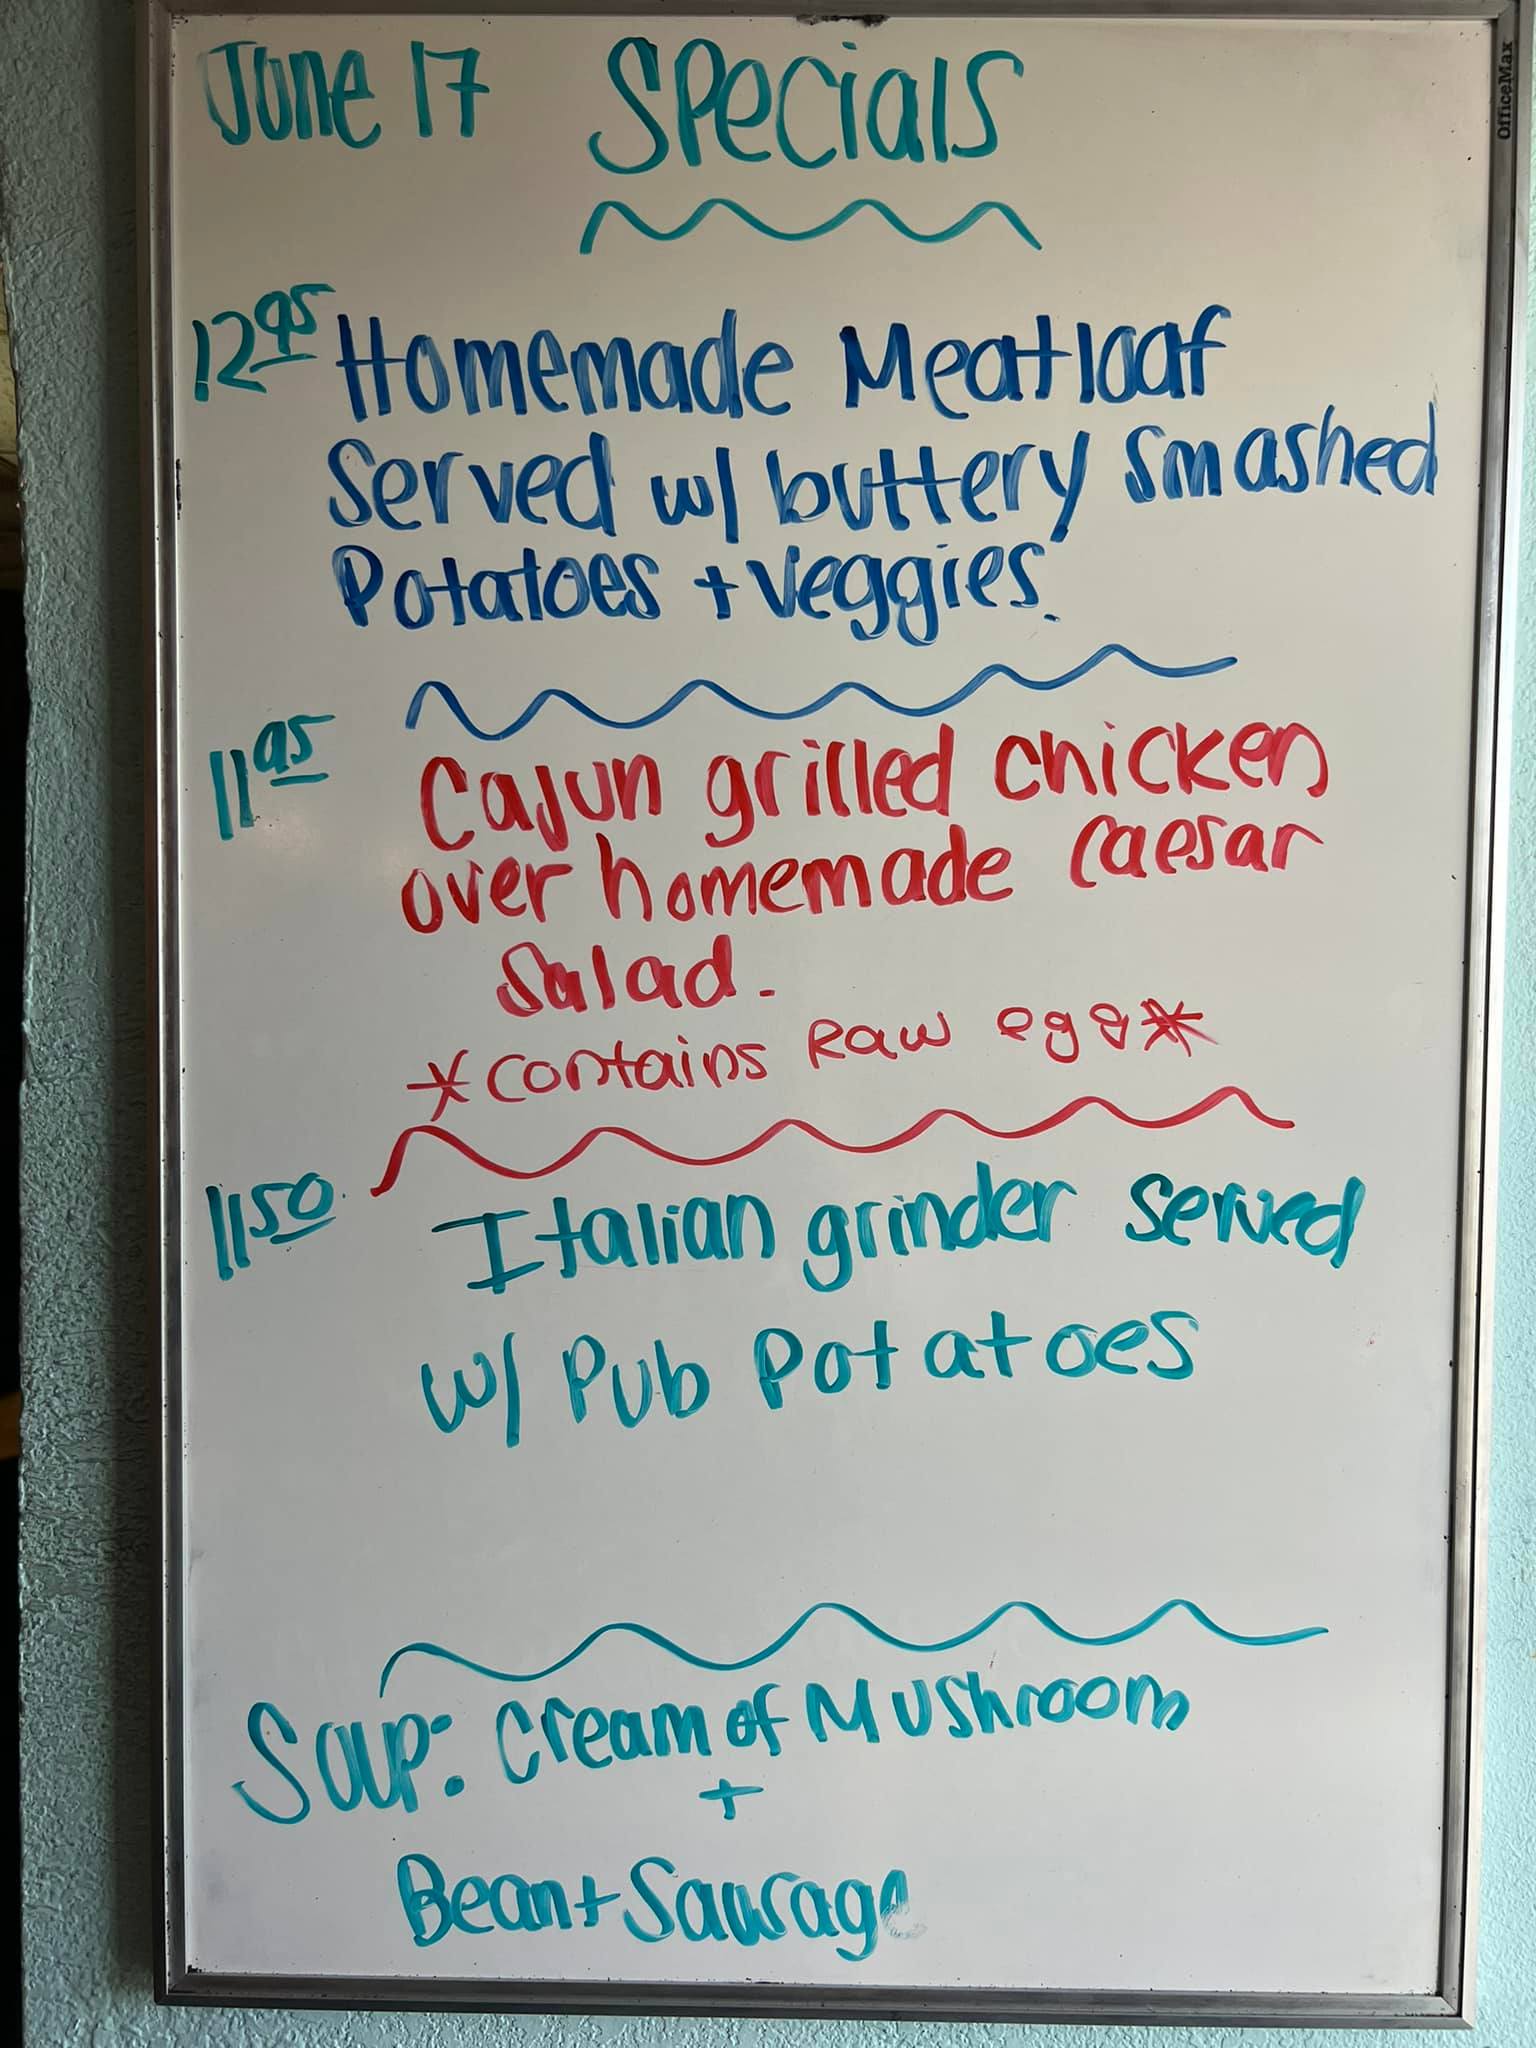 OfficeMax
June 17 Specials
12.95 Homemade Meatloaf
Served w/ buttery smashed
Potatoes + veggies.
11.95 Cajun grilled chicken
over homemade caesar
salad.
*contains Raw egg*
11.50 Italian grinder served
w/ Pub Potatoes
Soup: Cream of Mushroom
+
Bean + Sausage